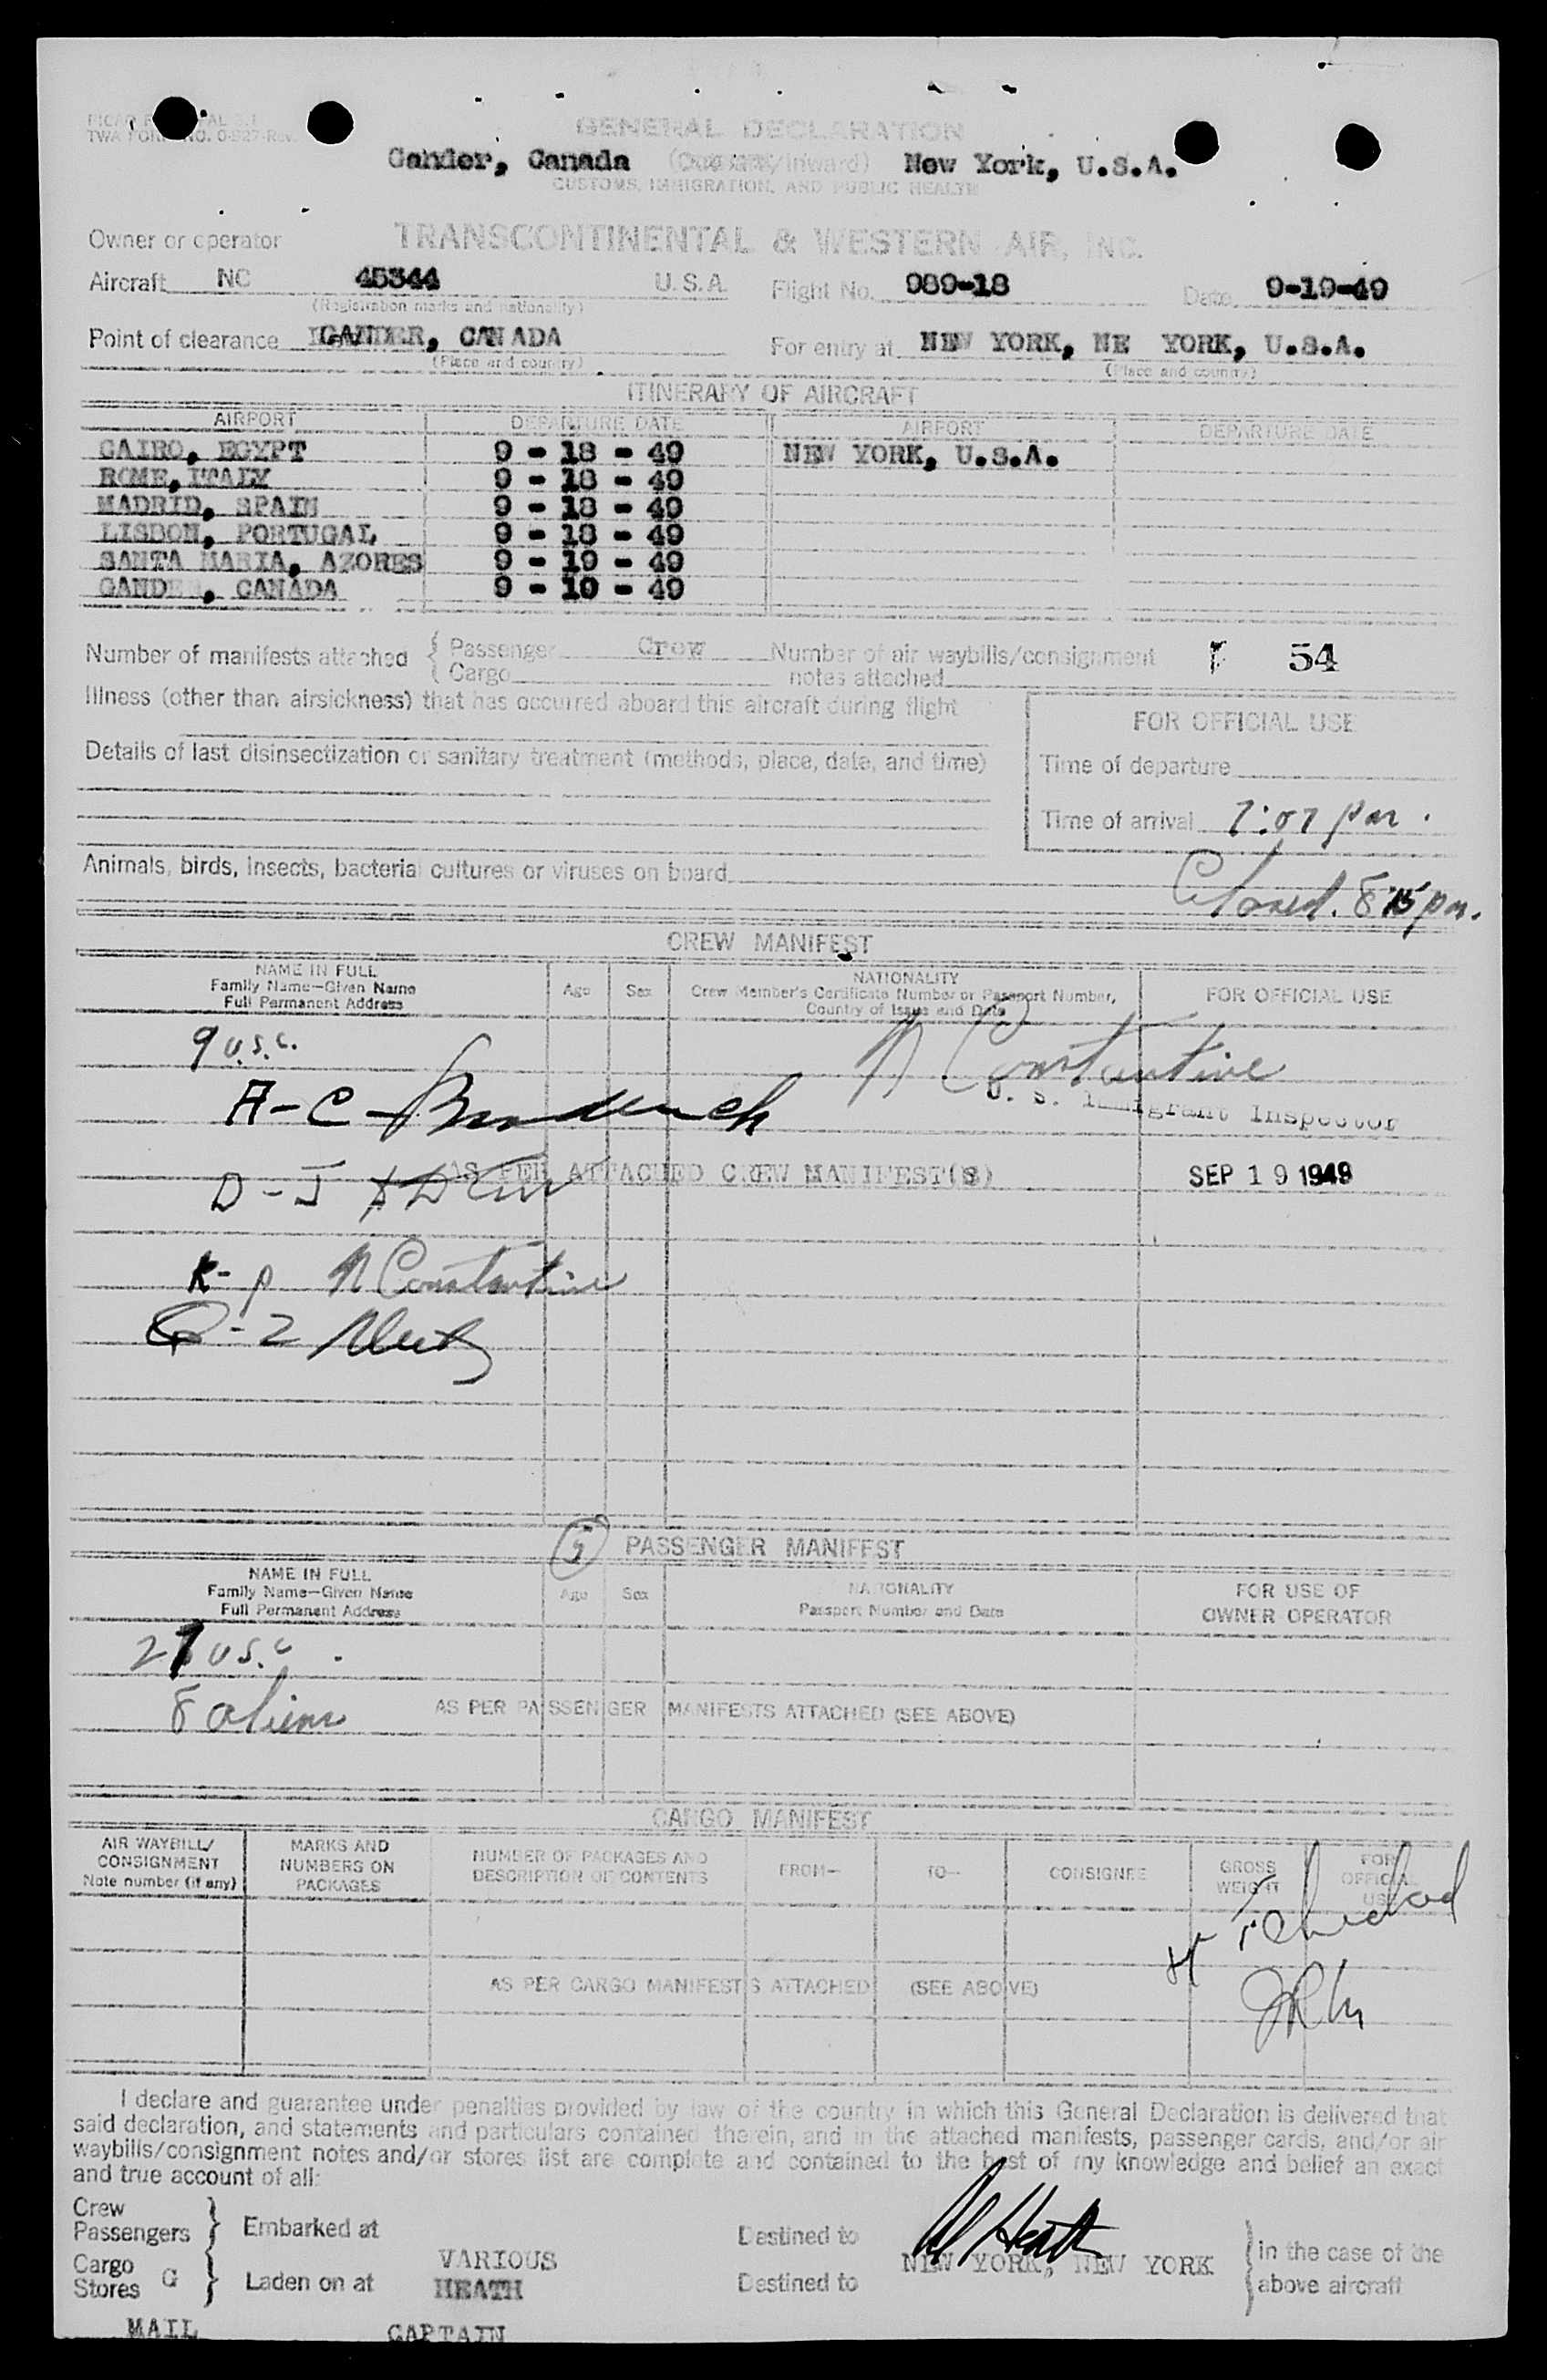 TWA FORM NO. 0-927-Rev.
GENERAL DECLARATION
Gander, Canada (Outward/Inward) New York, U.S.A.
CUSTOMS, IMMIGRATION, AND PUBLIC HEALTH
Owner or operator TRANSCONTINENTAL & WESTERN AIR, INC.
Aircraft NC 45344 U.S.A. Flight No. 989-18 Date 9-19-49
(Registration marks and nationality)
Point of clearance GANDER, CANADA For entry at NEW YORK, NE YORK, U.S.A.
(Place and country) (Place and country)
ITINERARY OF AIRCRAFT
AIRPORT DEPARTURE DATE AIRPORT DEPARTURE DATE
CAIRO, EGYPT 9 - 18 - 49 NEW YORK, U.S.A.
ROME, ITALY 9 - 18 - 49
MADRID, SPAIN 9 - 18 - 49
LISBON, PORTUGAL 9 - 18 - 49
SANTA MARIA, AZORES 9 - 19 - 49
GANDER, CANADA 9 - 19 - 49
Number of manifests attached { Passenger Crew Number of air waybills/consignment 54
{ Cargo notes attached
Illness (other than airsickness) that has occurred aboard this aircraft during flight
FOR OFFICIAL USE
Details of last disinsectization or sanitary treatment (methods, place, date, and time)
Time of departure
Time of arrival 7:07 pm.
Animals, birds, insects, bacterial cultures or viruses on board
Closed. 8 15 pm.
CREW MANIFEST
NAME IN FULL
Family Name—Given Name
Full Permanent Address
Age Sex
NATIONALITY
Crew Member's Certificate Number or Passport Number,
Country of Issue and Date
FOR OFFICIAL USE
9 U.S.C.
N Constantine
A-C
U. S. Immigrant Inspector
D-J
AS PER ATTACHED CREW MANIFEST(S)
SEP 19 1949
K-P N Constantine
Q-Z
5
PASSENGER MANIFEST
NAME IN FULL
Family Name—Given Name
Full Permanent Address
Age Sex
NATIONALITY
Passport Number and Date
FOR USE OF
OWNER OPERATOR
27 U.S.C.
8 aliens
AS PER PASSENGER MANIFESTS ATTACHED (SEE ABOVE)
CARGO MANIFEST
AIR WAYBILL/
CONSIGNMENT
Note number (if any)
MARKS AND
NUMBERS ON
PACKAGES
NUMBER OF PACKAGES AND
DESCRIPTION OF CONTENTS
FROM—
TO—
CONSIGNEE
GROSS
WEIGHT
FOR
OFFICIAL
USE
AS PER CARGO MANIFESTS ATTACHED (SEE ABOVE)
I declare and guarantee under penalties provided by law of the country in which this General Declaration is delivered that
said declaration, and statements and particulars contained therein, and in the attached manifests, passenger cards, and/or air
waybills/consignment notes and/or stores list are complete and contained to the best of my knowledge and belief an exact
and true account of all:
Crew
Passengers } Embarked at Destined to
Heath
Cargo VARIOUS NEW YORK, NEW YORK
Stores G } Laden on at HEATH Destined to
{ in the case of the
above aircraft
MAIL CAPTAIN